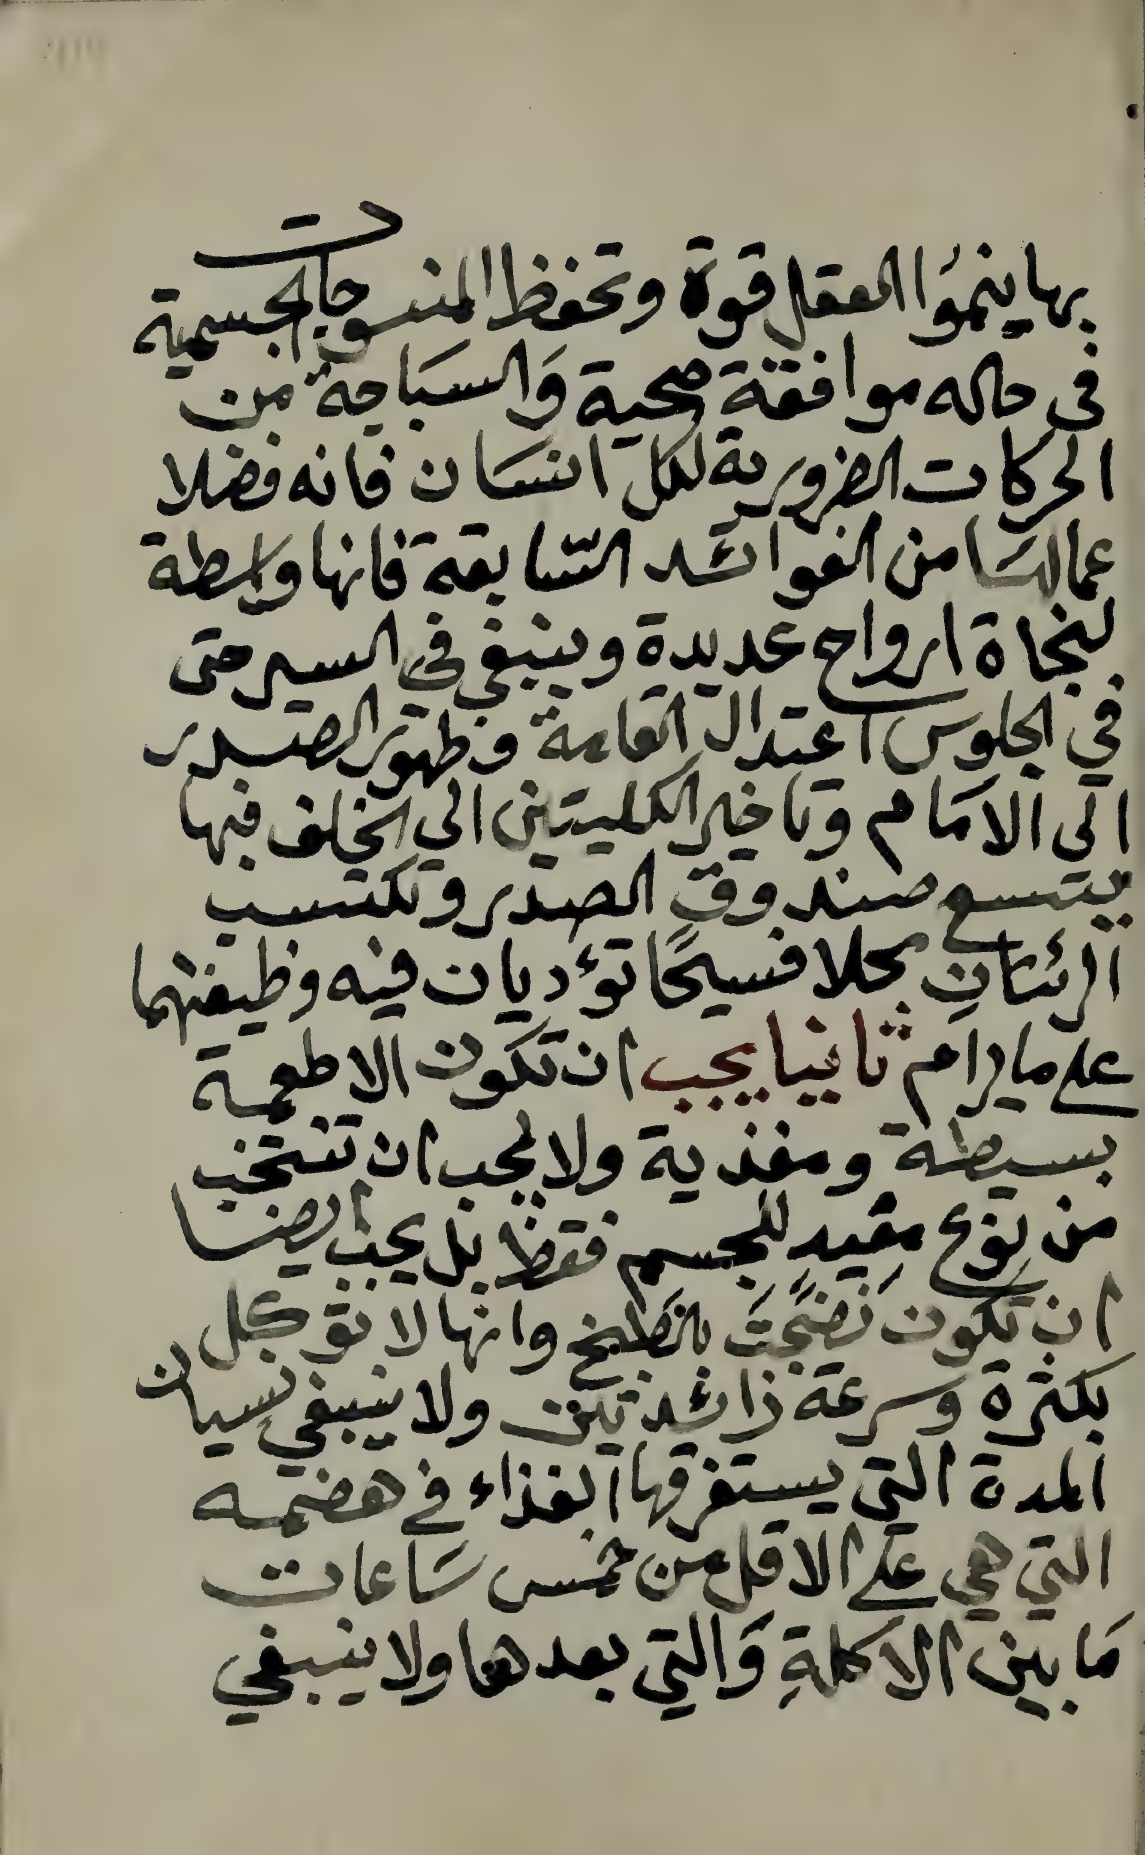 بها ينموُا العقل قوة وتحفظ المنسوجات الجسمية
في حاله موافقة صحية وَالسبَاحة من
الحركات الضرورية لكل انسَان فانه فضلا
عمالهَا من الفوائد السّابقة فانها واسطة
لنجاة ارواح عديدة وينبغي في السير حتى
في الجلوس اعتدال القامة وظهور الصدر
الى الامَام وتاخير الكليتين الي الخلف فبها
يتسع صندوق الصدر وتكتسب
الرئتانِ محلا فسيحًا تؤديان فيه وظيفتهما
على ما يرام ثانيا يجب ان تكون الاطعمة
بسيطة ومغذية ولا يجب ان تنتخب
من نوع مفيد للجسم فقط بل يجب ايضا
ان تكون نَضجَت بالطبخ وانها لا تؤكل
بكثرة وسرعة زائدتين ولا ينبغي نسيان
المدة التي يستغرقها الغذاء في هضمه
التي هي على الاقل من خمس سَاعات
مَا بين الاكلةِ وَالتي بعدها ولا ينبغي